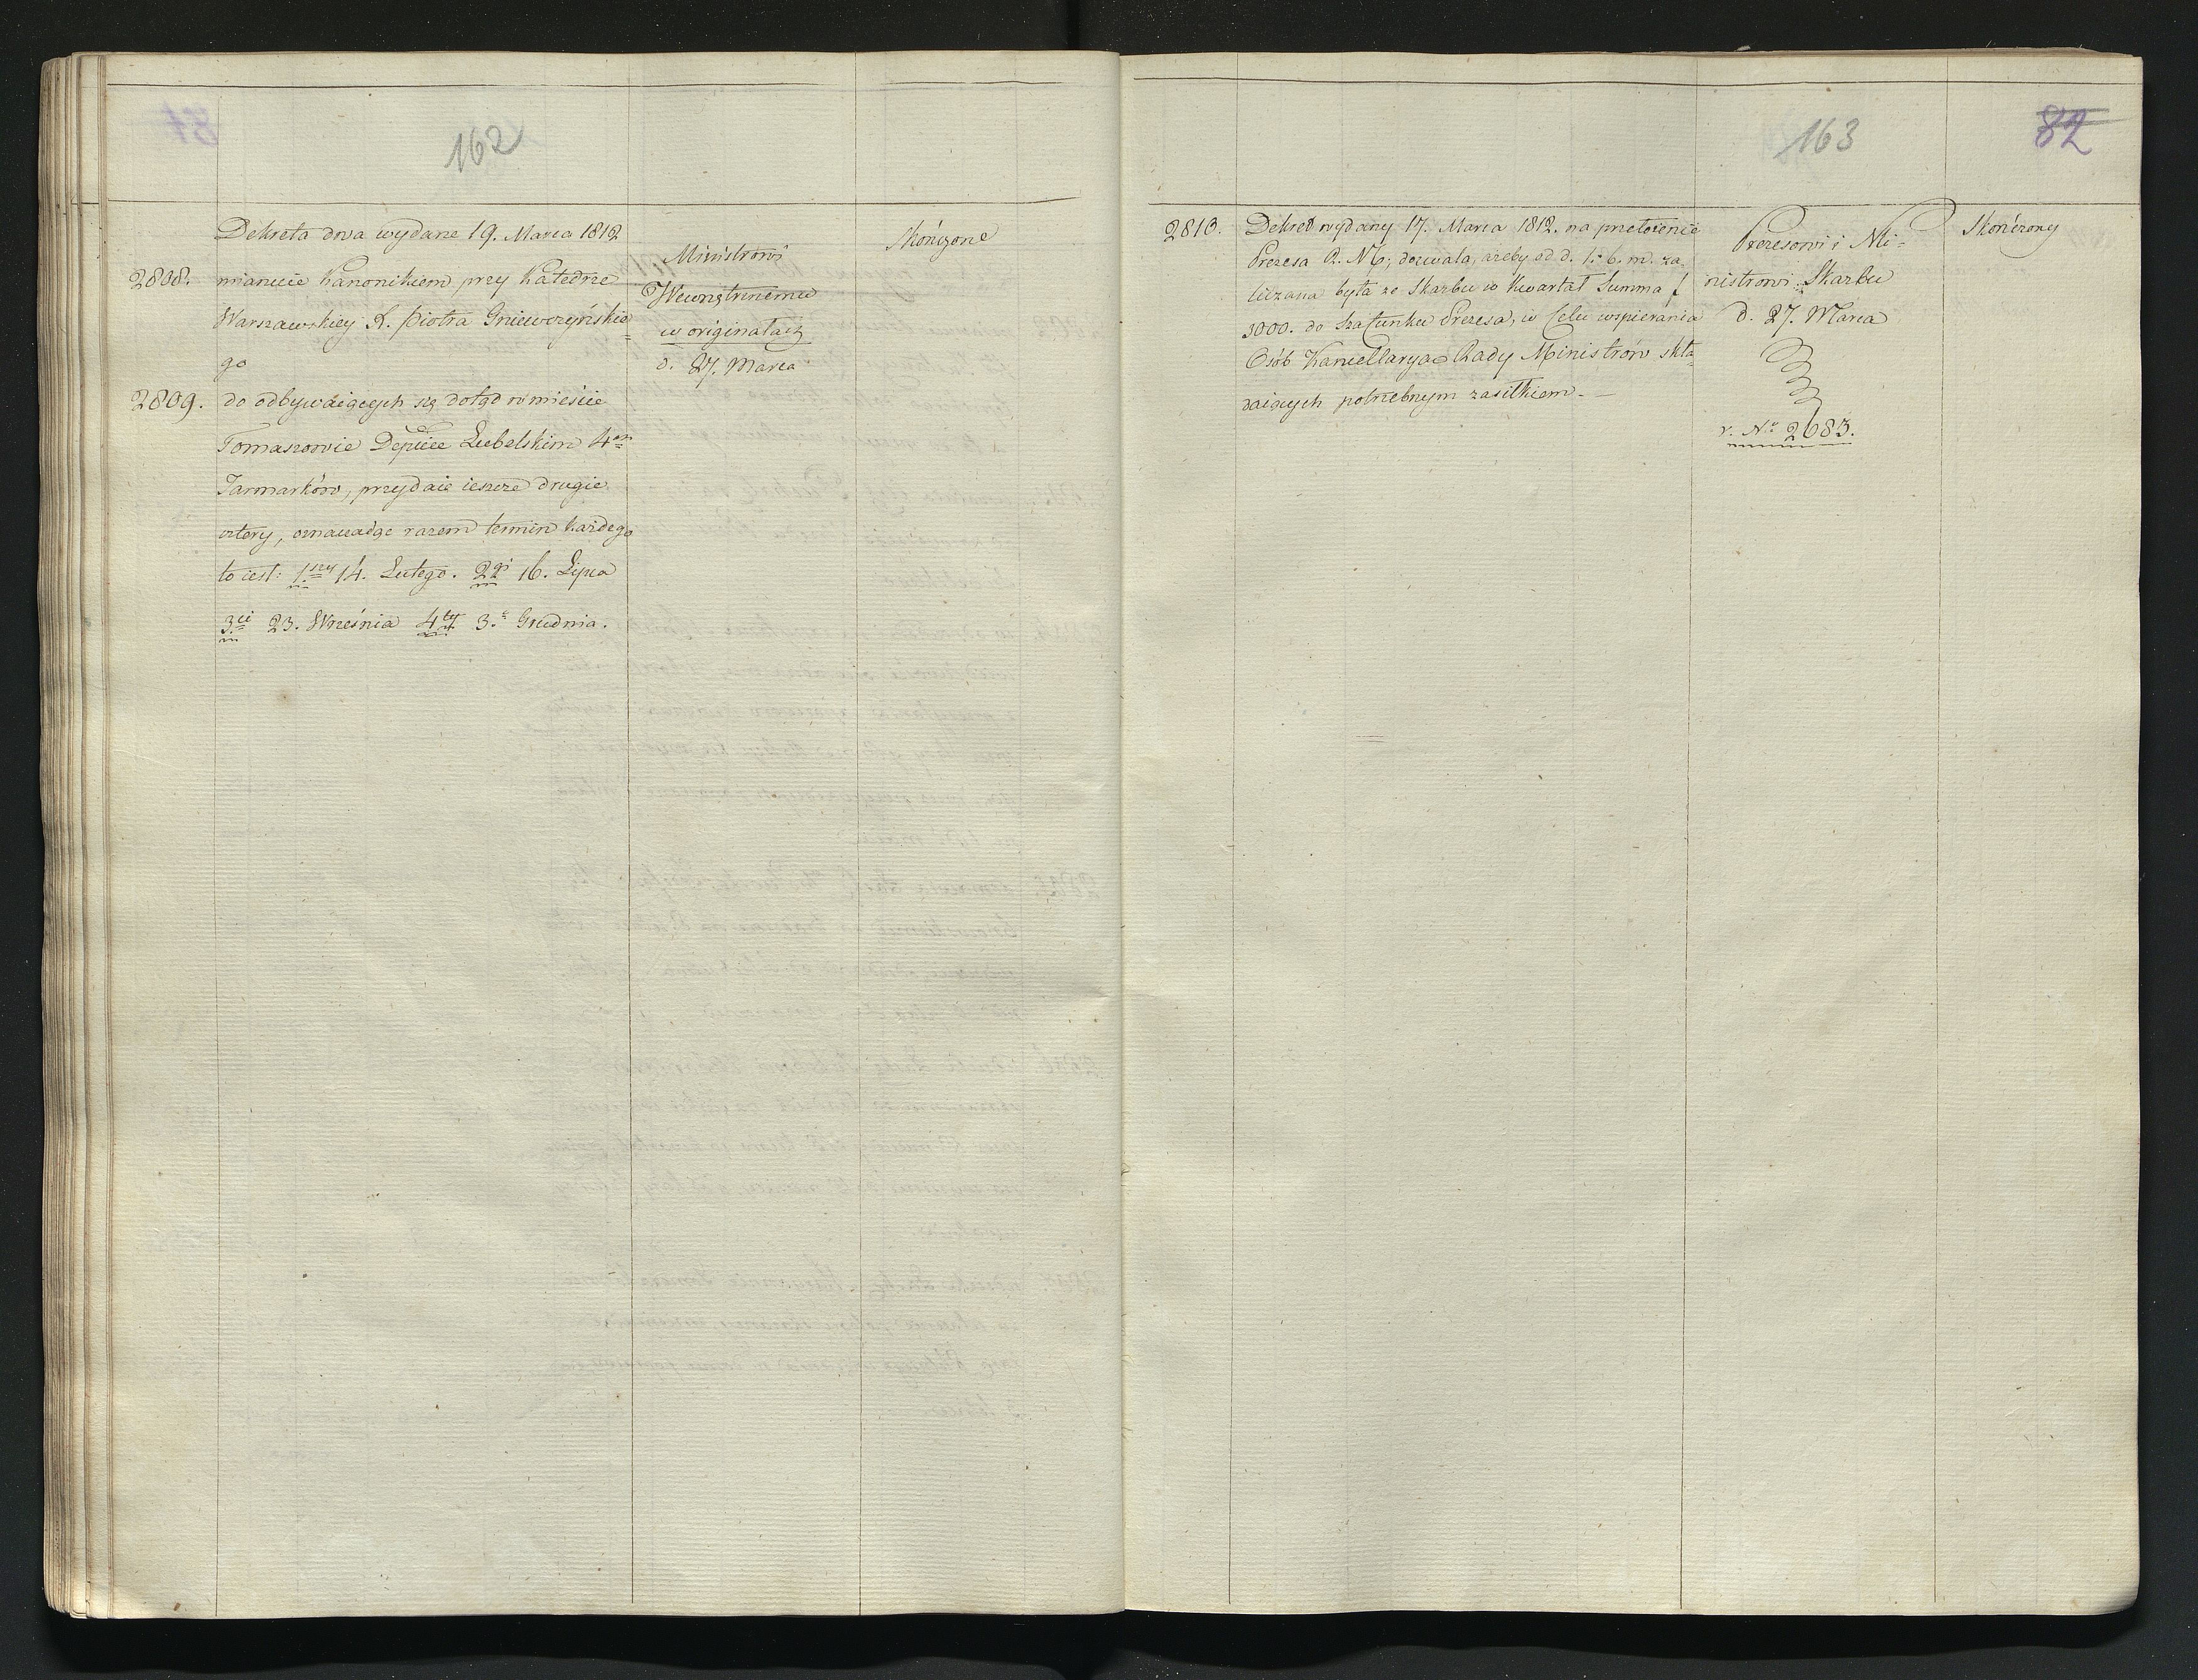 162
Dekreta dwa wydane 19. Marca 1812.
2808. mianuie Kanonikiem przy Katedrze
Warszawskiey X. Piotra Gniewczyńskie=
go
Ministrowi
Wewnętrznemu
w originałach
d. 27. Marca
Skończone
2809. do odbywaiących się dotąd w mieście
Tomaszowie Depcie Lubelskim 4ech
Jarmarków, przydaie ieszcze drugie
cztery, oznaczaiąc razem termin każdego
to iest: 1szy 14. Lutego. 2gi 16. Lipca
3ci 23. Września 4ty 3. Grudnia.
163
82
2810. Dekret wydany 17. Marca 1812. na przełożenie
Prezesa R. M; dozwala, ażeby od d. 1. b. m. za=
liczana była ze Skarbu w Kwartał Summa f
3000. do Szafunku Prezesa, w Celu wspierania
Osób Kancellaryą Rady Ministrów skła=
daiących potrzebnym zasiłkiem.
Prezesowi i Mi=
nistrowi Skarbu
d. 27. Marca
v. No 2683.
Skończony